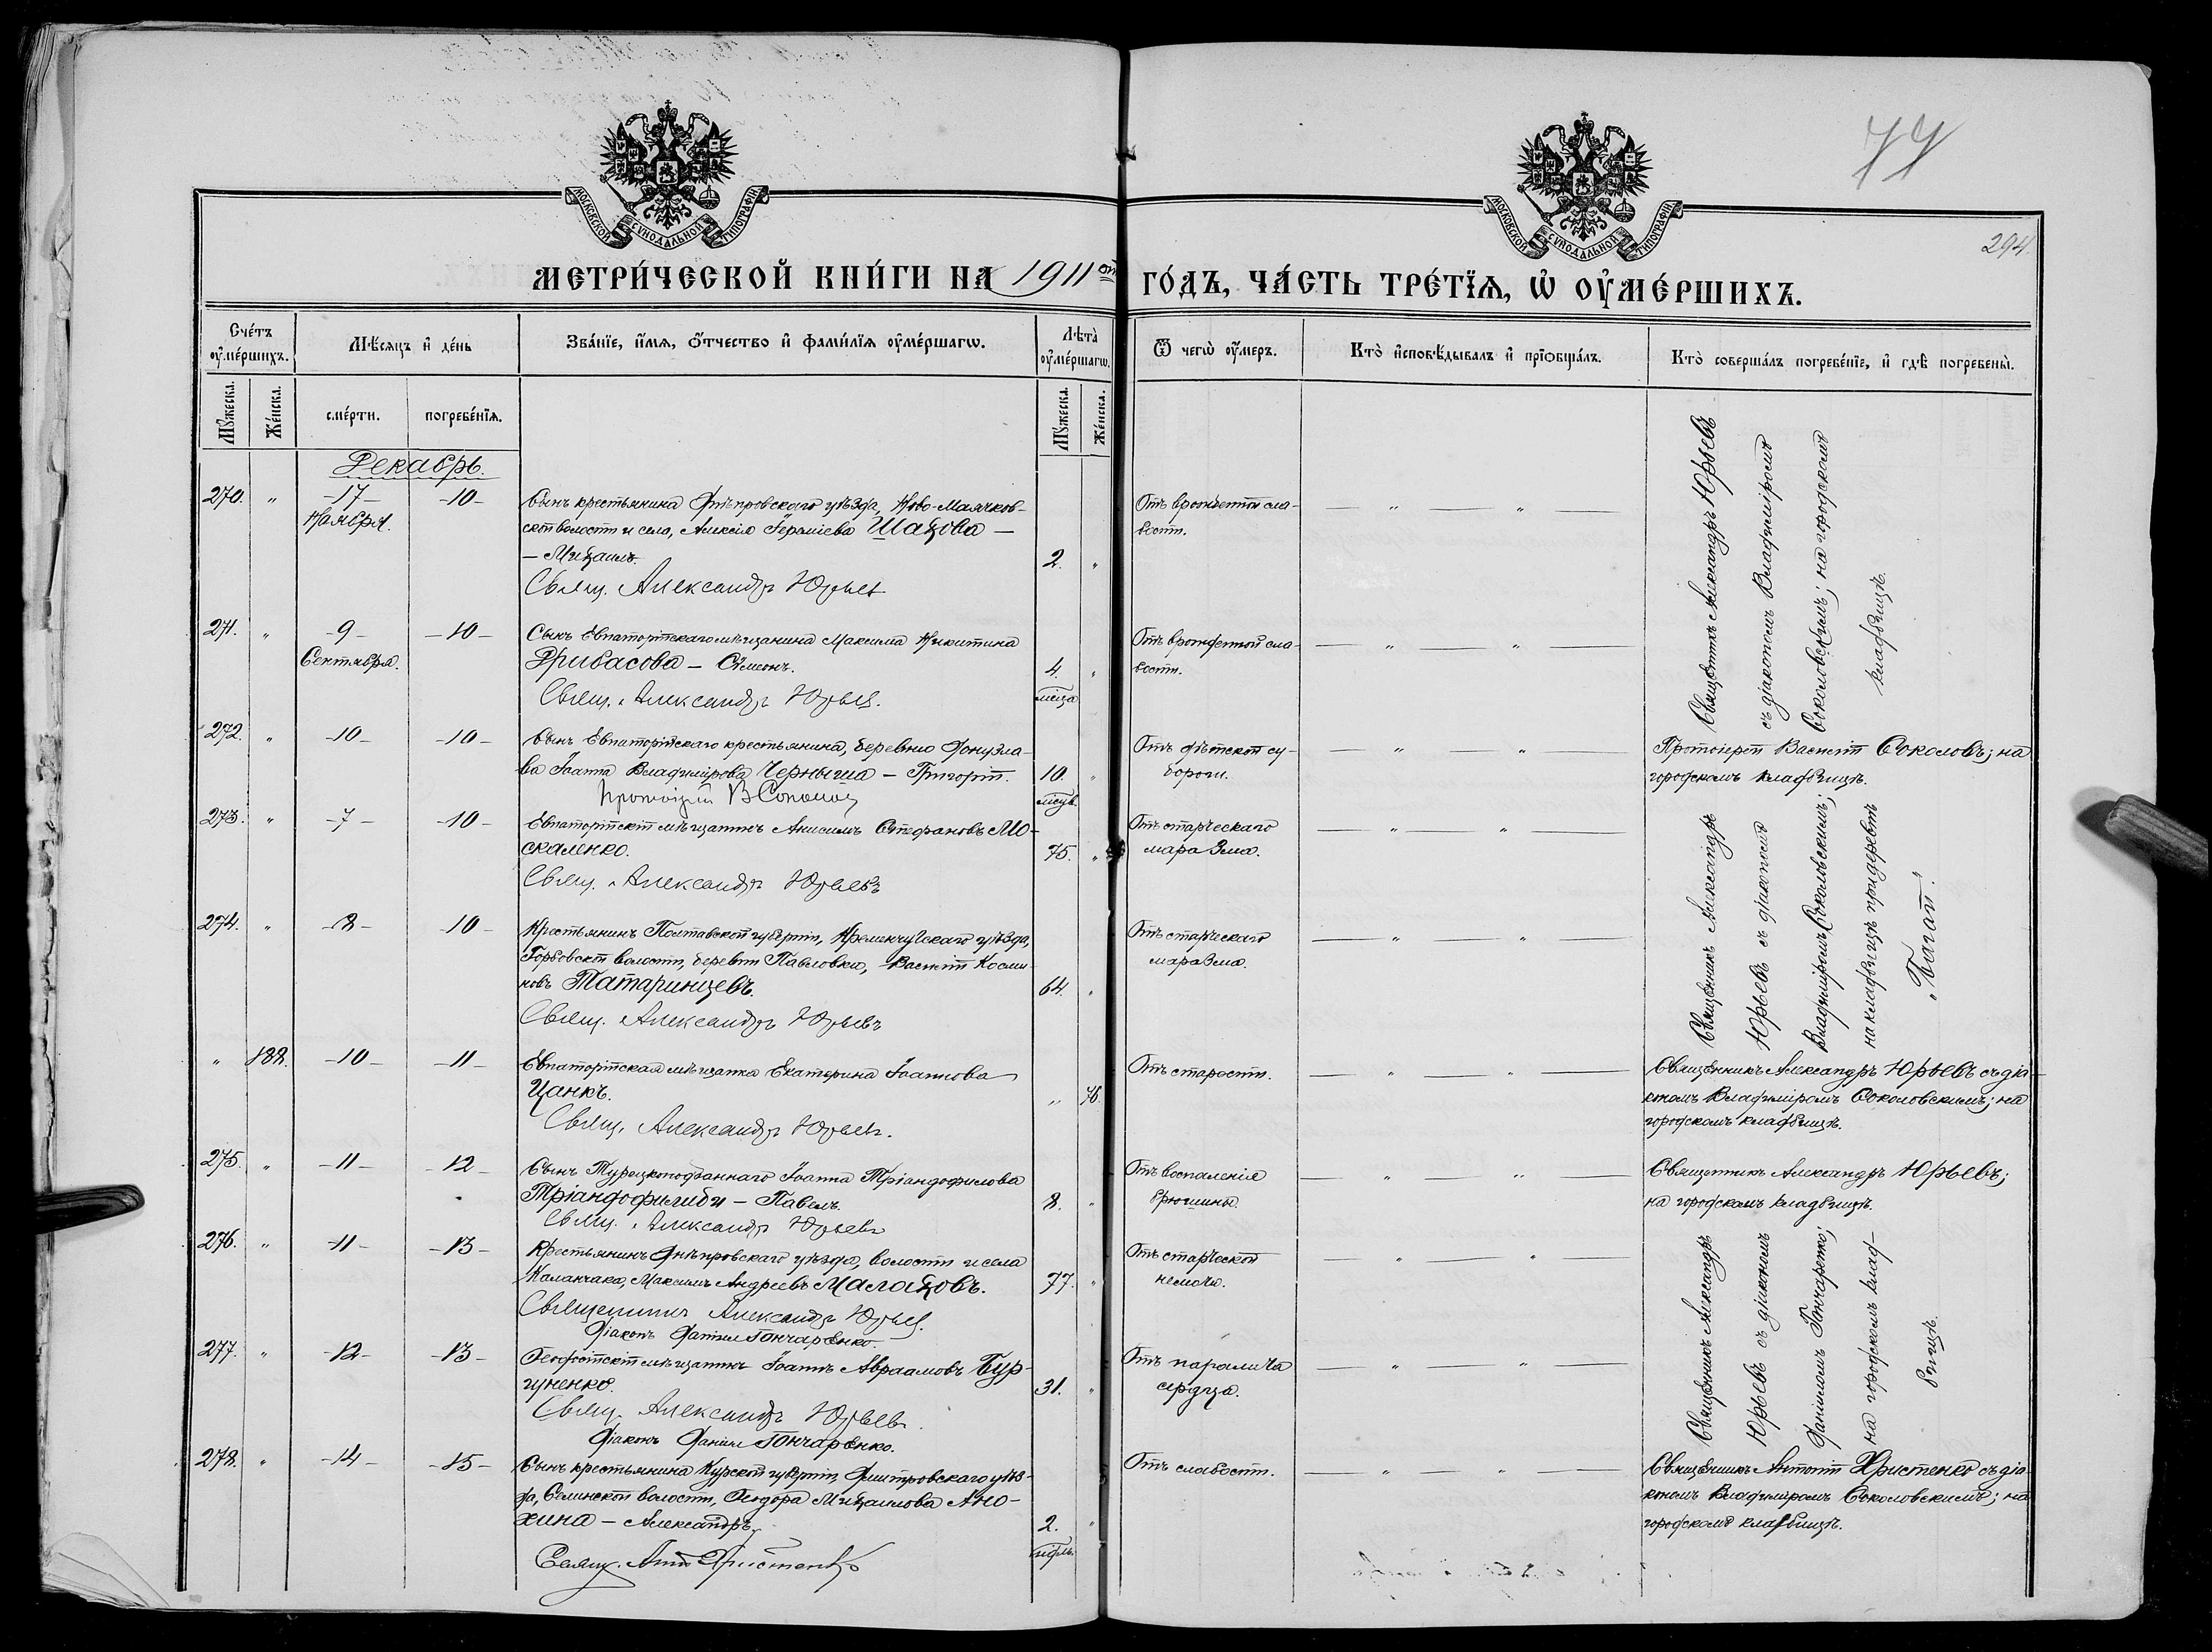 77
294
МОСКОВСКОЙ СУНОДАЛЬНОЙ ТИПОГРАФІИ
МОСКОВСКОЙ СУНОДАЛЬНОЙ ТИПОГРАФІИ
МЕТРИ́ЧЕСКОЙ КНИ́ГИ НА 1911 ый ГО́ДЪ, ЧА́СТЬ ТРЕ́ТЇѦ, Ѡ҆ ОУ҆МЕ́РШИХЪ.
Сче́тъ оу҆ме́ршихъ.
Мѣ́сяцъ и҆ де́нь
Зва́нїе, и҆́мѧ, ѻ҆́тчество и҆ фами́лїѧ оу҆ме́ршагѡ.
Лѣ́та оу҆ме́ршагѡ.
Ѿ чегѡ̀ оу҆́меръ.
Кто̀ и҆сповѣ́дывалъ и҆ прїѡбща́лъ.
Кто̀ соверша́лъ погребе́нїе, и҆ гдѣ̀ погребены̀.
Мꙋ́жеска. Же́нска. сме́рти. погребе́нїѧ. Мꙋ́жеска. Же́нска.
Декабрь.
270. „ -17- -10- Сынъ крестьянина Днѣпровскаго уѣзда, Ново-Маячков-
Ноября. ской волости и села, Алексія Іереміева Шахова —
— Михаилъ. 2. „
Свящ. Александръ Юрьев
Отъ врожденной сла-
бости.
— „ — „ —
Священникъ Александръ Юрьевъ
съ діакономъ Владиміромъ
Соколовскимъ; на городскомъ
кладбищѣ.
271. „ -9- -10- Сынъ Евпаторійскаго мѣщанина Максима Никитина
Сентября. Грибасова — Симеонъ. 4. „
мѣсца
Свящ. Александръ Юрьев.
Отъ врожденной сла-
бости.
— „ — „ —
272. „ -10- -10- Сынъ Евпаторійскаго крестьянина, деревни Донузла-
ва Іоанна Владимірова Черныша — Григорій. 10. „
мсцв.
Протоіерей В Соколов
Отъ дѣтской су-
дороги.
— „ — „ —
Протоіерей Василій Соколовъ; на
городскомъ кладбищѣ.
273. „ -7- -10- Евпаторійскій мѣщанинъ Анисимъ Стефановъ Мо-
скаленко. 75. „
Свящ. Александръ Юрьевъ
Отъ старческаго
маразма.
— „ — „ —
Священникъ Александръ
Юрьевъ съ діакономъ
Владиміромъ Соколовскимъ;
на кладбищѣ при деревнѣ
„Богай“.
274. „ -8- -10- Крестьянинъ Полтавской губерніи, Кременчугскаго уѣзда,
волости, деревни Павловки, Василій Косми-
новъ Татаринцевъ. 64. „
Свящ. Александръ Юрьевъ
Отъ старческаго
маразма.
— „ — „ —
„ 188. -10- -11- Евпаторійская мѣщанка Екатерина Іоаннова
Цанкъ. „ 76.
Свящ. Александръ Юрьевъ.
Отъ старости.
— „ — „ —
Священникъ Александръ Юрьевъ съ діа-
кономъ Владиміромъ Соколовскимъ; на
городскомъ кладбищѣ.
275. „ -11- -12- Сынъ Турецкоподданнаго Іоанна Тріандофилова
Тріандофилиди — Павелъ. 8. „
Свящ. Александръ Юрьевъ
Отъ воспаленія
брюшины.
— „ — „ —
Священникъ Александръ Юрьевъ;
на городскомъ кладбищѣ.
276. „ -11- -13- Крестьянинъ Днѣпровскаго уѣзда, волости и села
Каланчака, Максимъ Андреевъ Малаховъ. 77. „
Священникъ Александръ Юрьев.
Діаконъ Даніил Гончаренко.
Отъ старческой
немочи.
„ „
Священникъ Александръ
Юрьевъ съ діакономъ
Даніиломъ Гончаренко;
на городскомъ клад-
бищѣ.
277. „ -12- -13- мѣщанинъ Іоаннъ Авраамовъ Бур-
гуненко. 31. „
Свящ. Александръ Юрьевъ.
Діаконъ Даніил Гончаренко.
Отъ паралича
сердца.
— „ — „ —
278. „ -14- -15- Сынъ крестьянина Курской губерніи, Дмитровскаго уѣз-
да, Селинской волости, Ѳеодора Михаилова Ано-
хина — Александръ. 2. „
Свящ. Анто Христенко
Отъ слабости.
— „ — „ —
Священникъ Антоній Христенко съ діа-
кономъ Владиміромъ Соколовскимъ; на
городскомъ кладбищѣ.